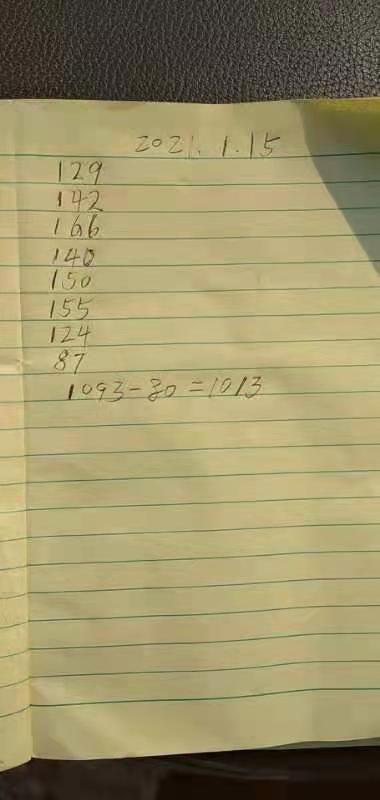 2021.1.15
129
142
166
140
150
155
124
87
1093-80=1013